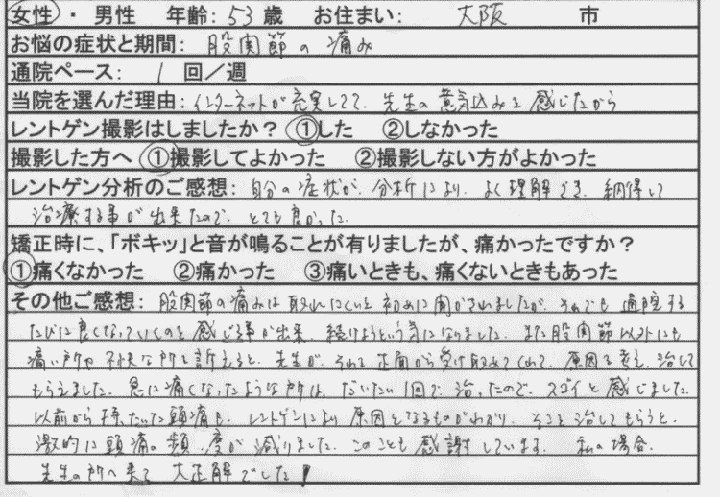 女性 ・ 男性　年齢：53歳　お住まい：　大阪　市
お悩の症状と期間：股関節の痛み
通院ペース：　1　回／週
当院を選んだ理由：インターネットが充実してて、先生の意気込みを感じたから
レントゲン撮影はしましたか？　①した　②しなかった
撮影した方へ　①撮影してよかった　②撮影しない方がよかった
レントゲン分析のご感想：自分の症状が、分析により、よく理解でき、納得して
治療する事が出来たので、とても良かった。
矯正時に、「ボキッ」と音が鳴ることが有りましたが、痛かったですか？
①痛くなかった　②痛かった　③痛いときも、痛くないときもあった
その他ご感想：股関節の痛みは取れにくいと初めに聞かされましたが、それでも通院する
たびに良くなっていくのを感じる事が出来、続けようという気になりました。また股関節以外にも
痛い所や不快な所を訴えると、先生が、それを正面から受け取めてくれて、原因を考え、治して
もらえました。急に痛くなったような所は、だいたい1回で治ったので、スゴイと感じました。
以前から持っていた頭痛も、レントゲンにより原因となるものがわかり、そこを治してもらうと、
激的に頭痛の頻度が減りました。このことも感謝しています。私の場合、
先生の所へ来て大正解でした！